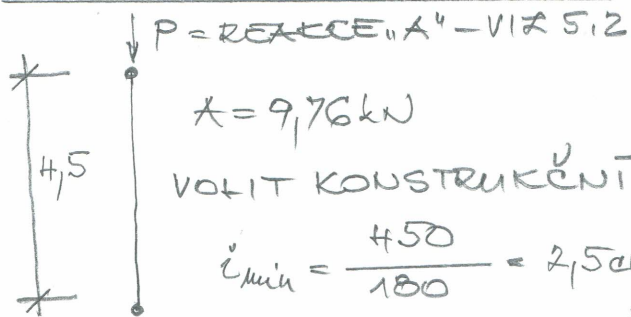 P = REAKCE „A" – VIZ 5.2
A = 9,76 kN
4,5
VOLIT KONSTRUKČNĚ
i min = 450 / 180 = 2,5 c